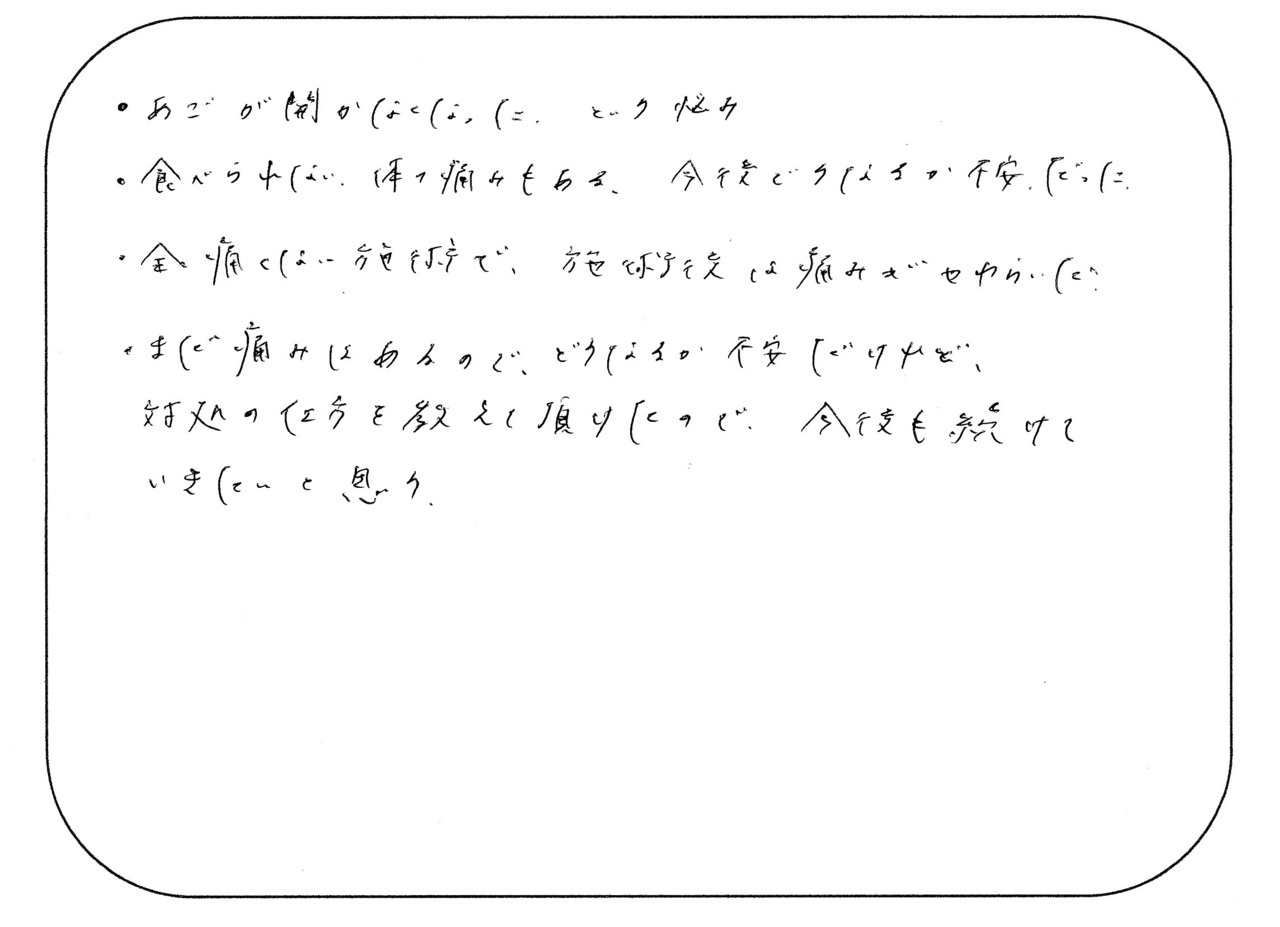 ・あごが開かなくなった。という悩み
・食べられない、体の痛みもある、今後どうなるか不安だった。
・全く痛くない施術で、施術後は痛みがやわらいだ。
・まだ痛みはあるので、どうなるか不安だけれど、
対処の仕方を教えて頂けたので、今後も続けて
いきたいと思う。